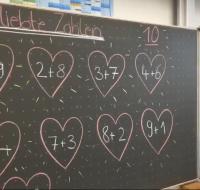 liebte Zahlen
10
9 2+8 3+7 4+6
+ 7+3 8+2 9+1